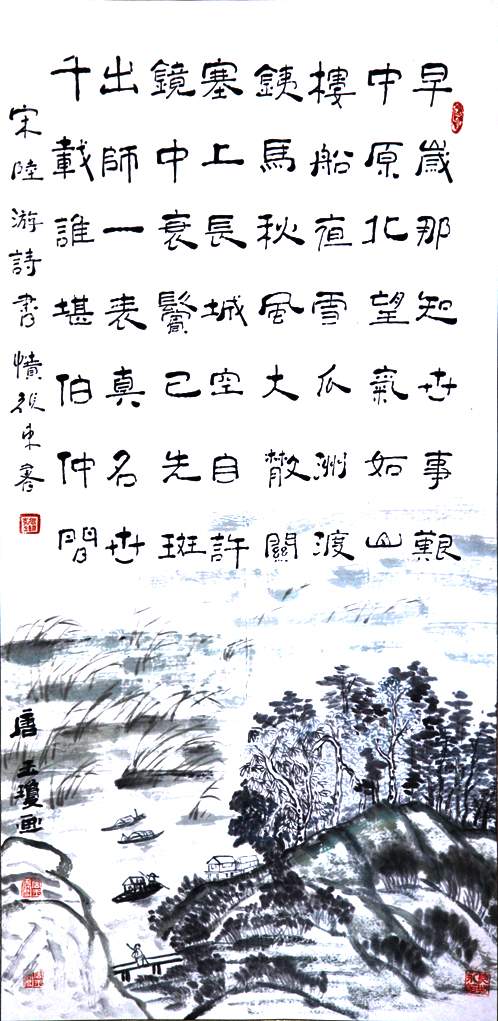 早歲那知世事艱
中原北望氣如山
樓船夜雪瓜洲渡
銕馬秋風大散關
塞上長城空自許
鏡中衰鬢已先斑
出師一表真名世
千載誰堪伯仲間
宋陸游詩書憤 東書
唐玉瓊畫